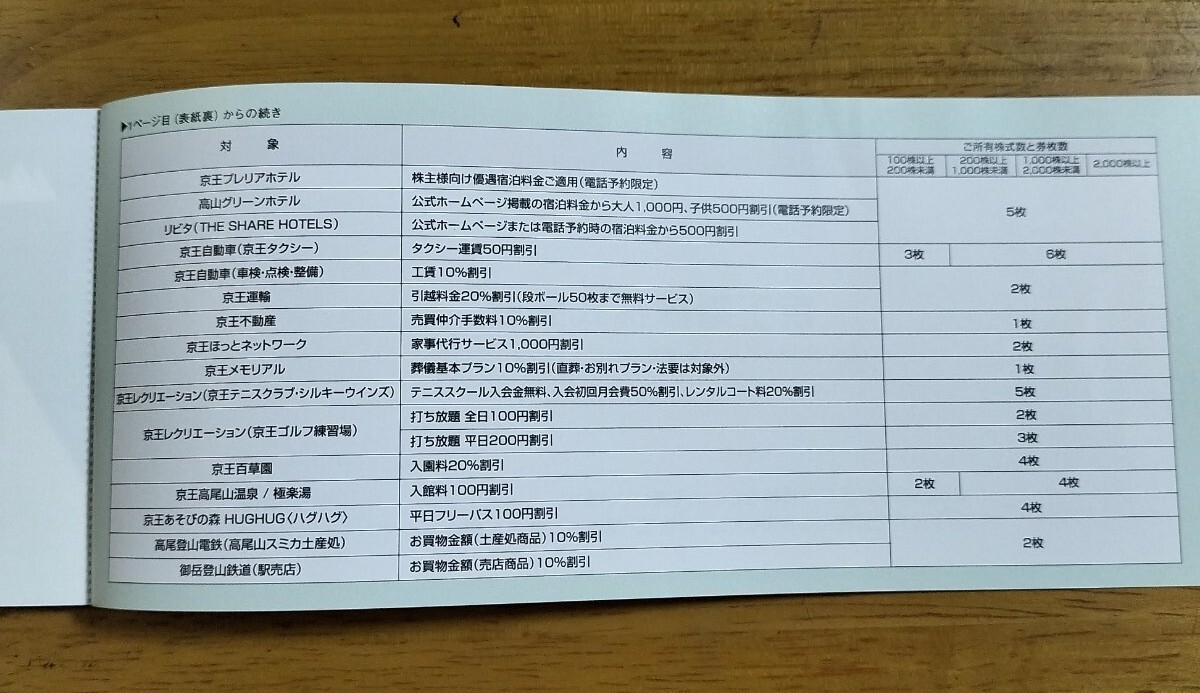 ▶1ページ目(表紙裏)からの続き
対 象 内 容 ご所有株式数と券枚数
100株以上 200株未満 200株以上 1,000株未満 1,000株以上 2,000株未満 2,000株以上
京王プレリアホテル 株主様向け優遇宿泊料金ご適用(電話予約限定)
高山グリーンホテル 公式ホームページ掲載の宿泊料金から大人1,000円、子供500円割引(電話予約限定) 5枚
リビタ(THE SHARE HOTELS) 公式ホームページまたは電話予約時の宿泊料金から500円割引
京王自動車(京王タクシー) タクシー運賃50円割引 3枚 6枚
京王自動車(車検・点検・整備) 工賃10%割引
京王運輸 引越料金20%割引(段ボール50枚まで無料サービス) 2枚
京王不動産 売買仲介手数料10%割引 1枚
京王ほっとネットワーク 家事代行サービス1,000円割引 2枚
京王メモリアル 葬儀基本プラン10%割引(直葬・お別れプラン・法要は対象外) 1枚
京王レクリエーション(京王テニスクラブ・シルキーウインズ) テニススクール入会金無料、入会初回月会費50%割引、レンタルコート料20%割引 5枚
京王レクリエーション(京王ゴルフ練習場) 打ち放題 全日100円割引 2枚
打ち放題 平日200円割引 3枚
京王百草園 入園料20%割引 4枚
京王高尾山温泉 / 極楽湯 入館料100円割引 2枚 4枚
京王あそびの森 HUGHUG〈ハグハグ〉 平日フリーパス100円割引 4枚
高尾登山電鉄(高尾山スミカ土産処) お買物金額(土産処商品)10%割引 2枚
御岳登山鉄道(駅売店) お買物金額(売店商品)10%割引